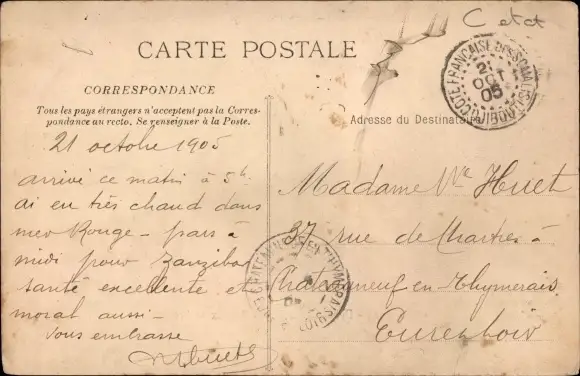 CARTE POSTALE
CORRESPONDANCE
Tous les pays étrangers n'acceptent pas la Corres-
pondance au recto. Se renseigner à la Poste.
21 octobre 1905
arrivé ce matin à 5h
ai eu très chaud dans
mer Rouge - pars à
midi pour Zanzibar
santé excellente et
moral aussi -
Vous embrasse
Adresse du Destinataire
Madame Vve Huet
37 rue de Chartres à
Chateauneuf en Thymerais
Eure & Loir
COTE FRANÇAISE DES SOMALIS
21
OCT
05
DJIBOUTI
CHATEAUNEUF EN THYMERAIS